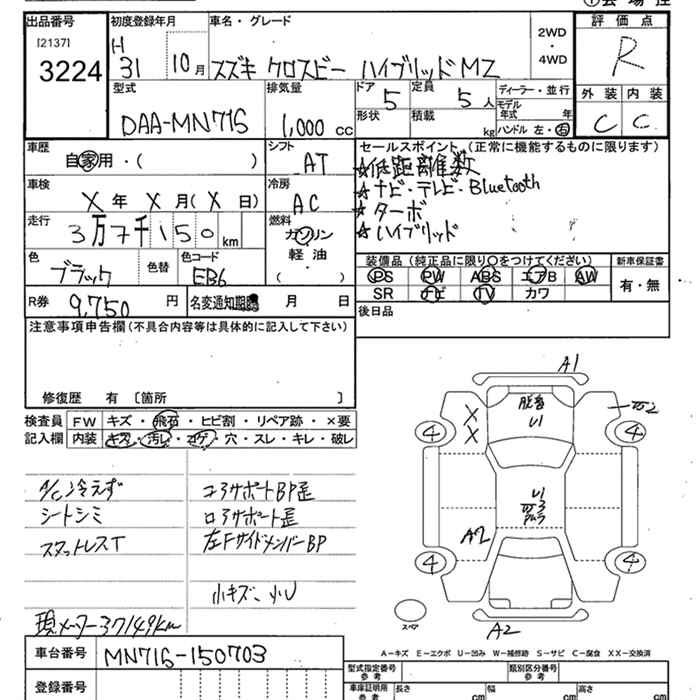 出品番号
[2137]
3224
初度登録年月
H
31 10月
車名・グレード
スズキ クロスビー ハイブリッドMZ
2WD
・
4WD
評価点
R
外装 内装
C C
型式
DAA-MN71S
排気量
1,000 cc
ドア
5
定員
5人
形状
積載
kg
ディーラー・並行
モデル
年式 年
ハンドル 左・右
車歴
自家用・( )
シフト
AT
セールスポイント (正常に機能するものに限ります)
☆低距離数
☆ナビ・テレビ・Bluetooth
☆ターボ
☆ハイブリッド
車検
X年 X月(X日)
冷房
AC
走行
3万7千150 km
燃料
ガソリン
軽油
( )
色
ブラック
色替
色コード
EB6
装備品 (純正品に限り○をつけてください)
PS PW ABS エアB AW
SR ナビ TV カワ
新車保証書
有・無
R券 9,750 円
名変通知期限 月 日
後日品
注意事項申告欄(不具合内容等は具体的に記入して下さい)
修復歴 有 [箇所 ]
検査員
記入欄
FW キズ・飛石・ヒビ割・リペア跡・×要
内装 キズ・汚レ・コゲ・穴・スレ・キレ・破レ
A/C冷えず
シートシミ
スタットレスT
コアサポートBP歪
ロアサポート歪
左FサイドメンバーBP
小キズ、小U
現メーター37149km
A1
脱着
U1
X
X
4
4
U1
A2
4
4
スペア
A2
A-キズ E-エクボ U-凹み W-補修跡 S-サビ C-腐食 XX-交換済
車台番号
MN71S-150703
登録番号
型式指定番号
参考
類別区分番号
参考
車庫証明用
参考
長さ cm
幅 cm
高さ cm